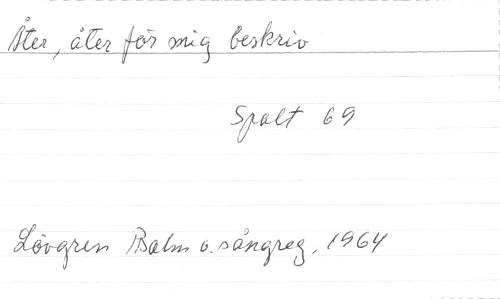 Åter, åter för mig beskriv
Spalt 69
Lövgren Psalm o. sångreg. 1964